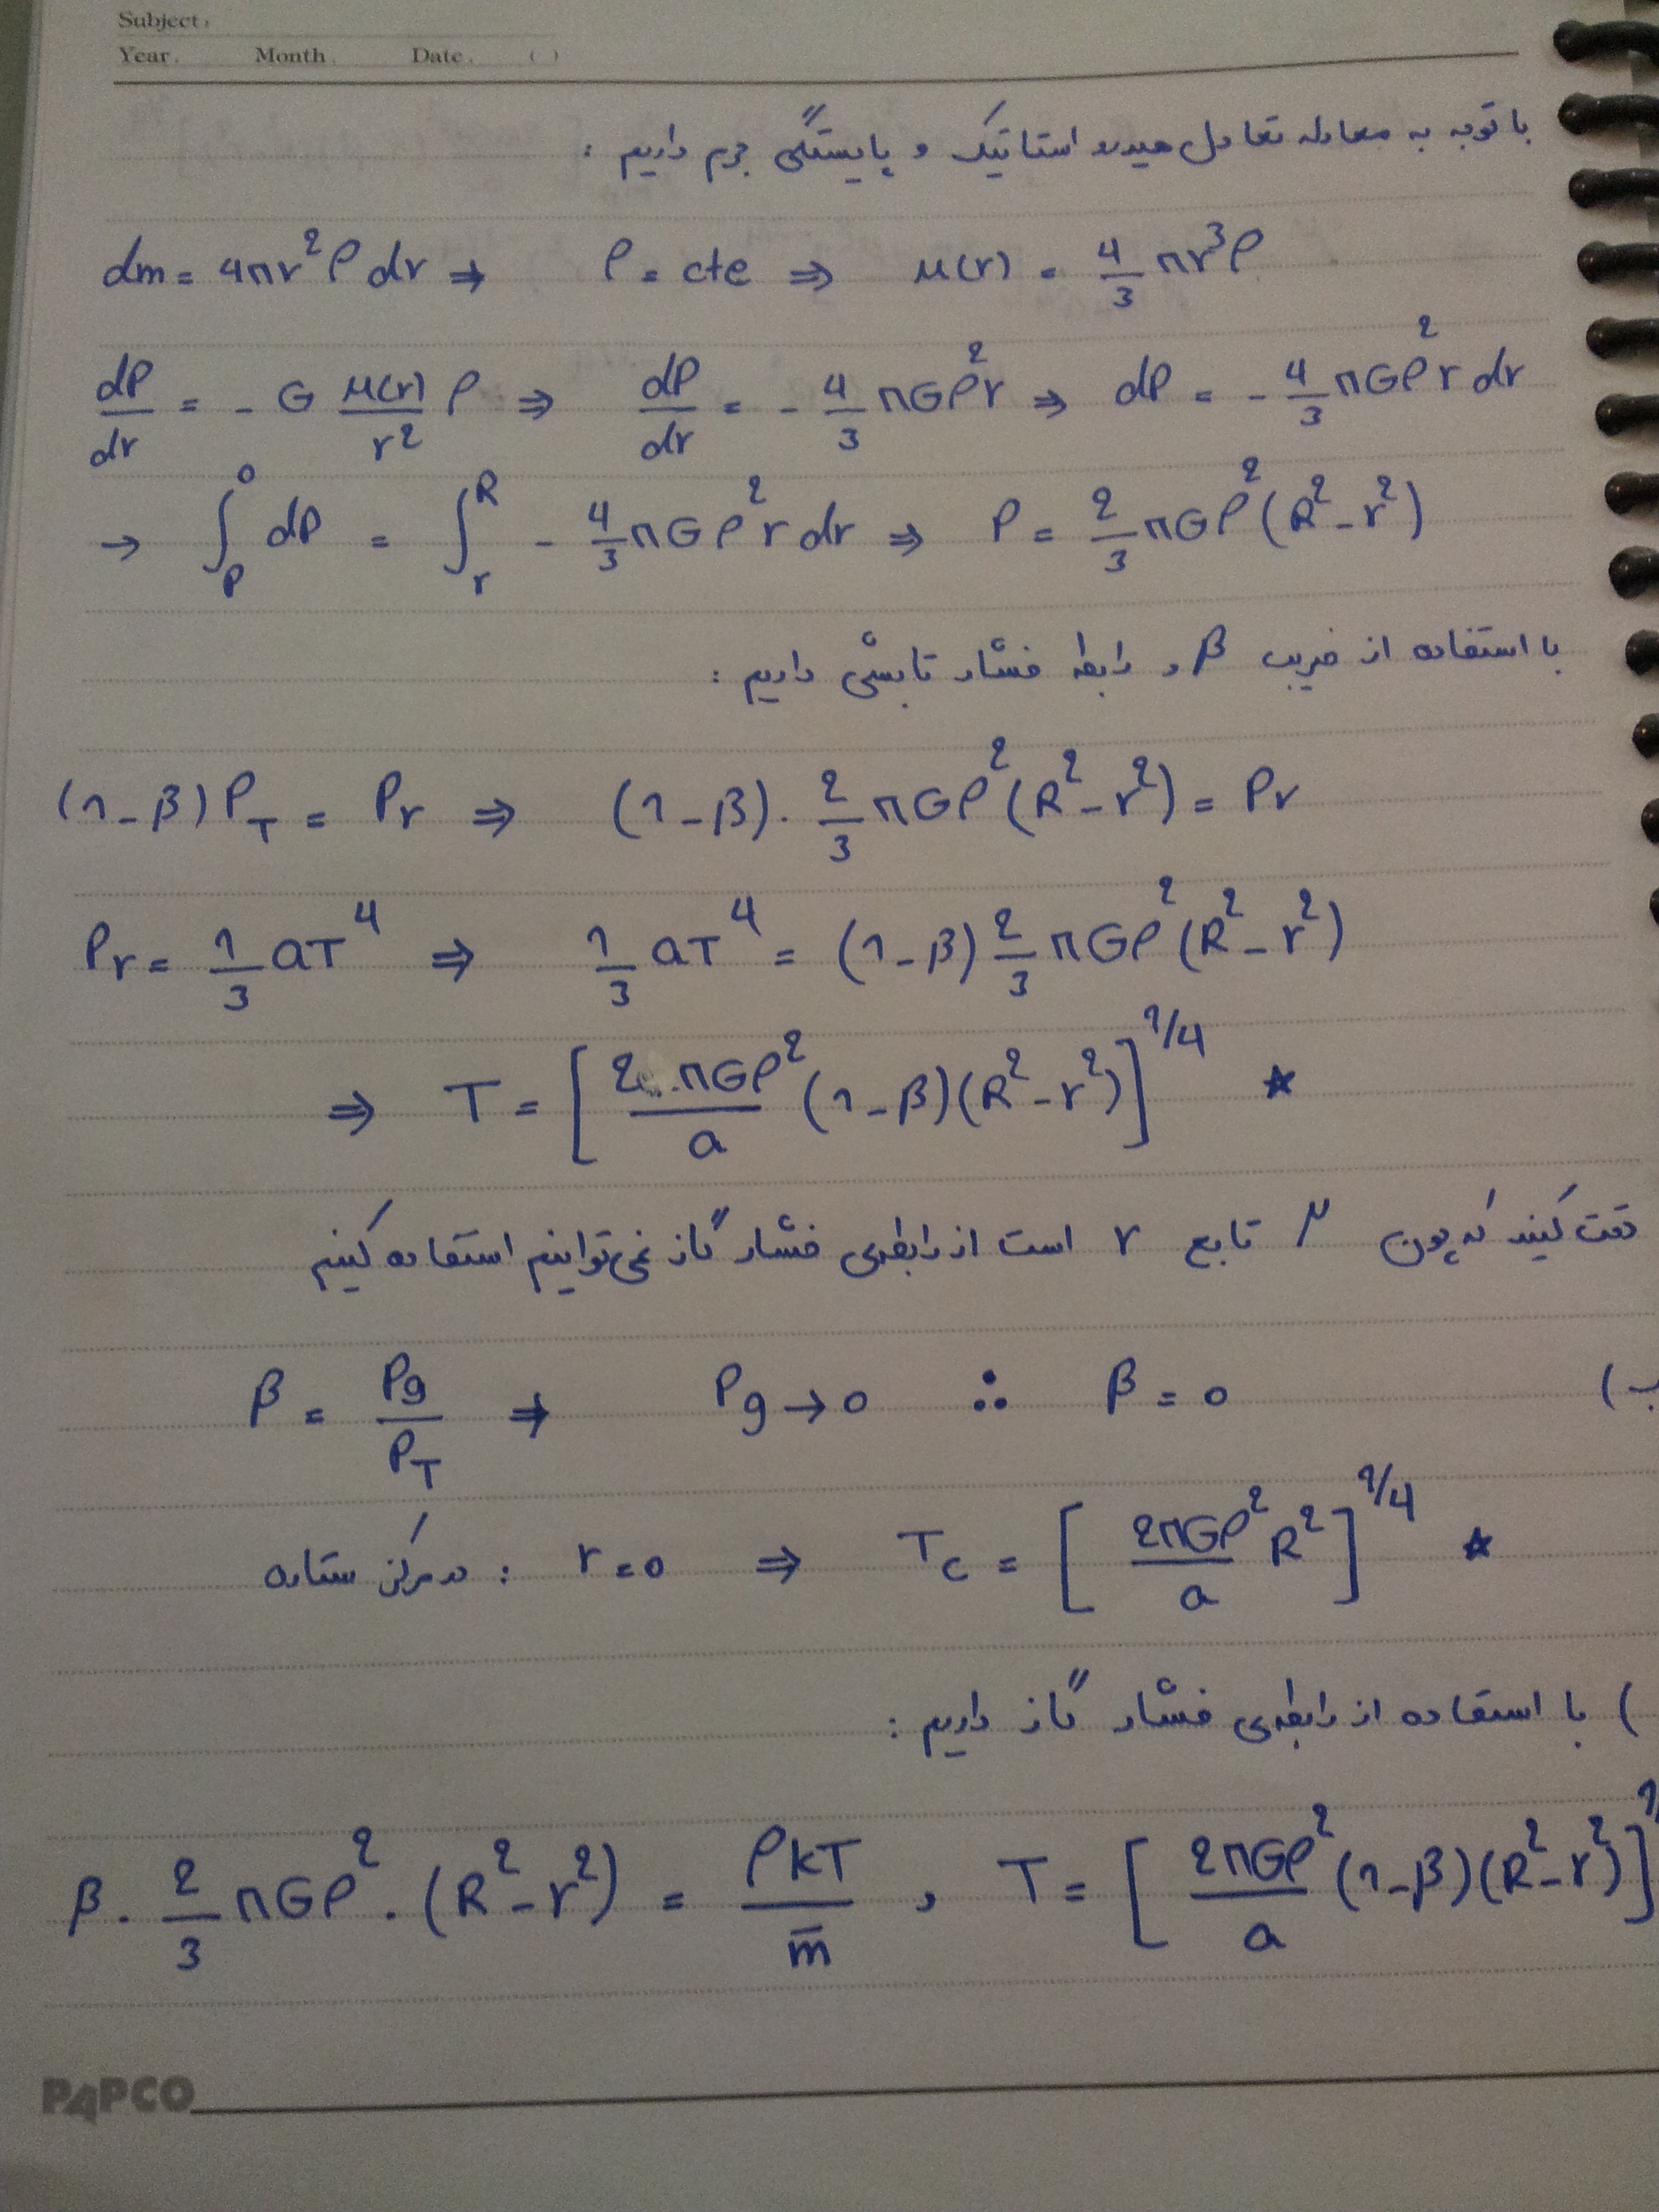 Subject:
Year. Month. Date. ( )
با توجه به معادله تعادل هیدرو استاتیک و پایستگی جرم داریم :
dm = 4πr²ρdr ⇒ ρ = cte ⇒ M(r) = 4/3 πr³ρ
dP/dr = - G M(r)/r² ρ ⇒ dP/dr = - 4/3 πGρ²r ⇒ dP = - 4/3 πGρ²r dr
→ ∫_P^0 dP = ∫_r^R - 4/3 πGρ²r dr ⇒ P = 2/3 πGρ²(R²-r²)
با استفاده از ضریب β و رابطه فشار تابشی داریم :
(1-β)P_T = Pr ⇒ (1-β). 2/3 πGρ²(R²-r²) = Pr
Pr = 1/3 aT⁴ ⇒ 1/3 aT⁴ = (1-β) 2/3 πGρ²(R²-r²)
⇒ T = [2πGρ²/a (1-β)(R²-r²)]^1/4 ★
دقت کنید که چون μ تابع r است از رابطه‌ی فشار گاز نمی‌توانیم استفاده کنیم
ب) β = Pg/P_T ⇒ Pg → 0 ∴ β = 0
در مرکز ستاره : r = 0 ⇒ Tc = [2πGρ²/a R²]^1/4 ★
) با استفاده از رابطه‌ی فشار گاز داریم :
β. 2/3 πGρ².(R²-r²) = ρkT/m̄ , T = [2πGρ²/a (1-β)(R²-r²)]^1
PAPCO